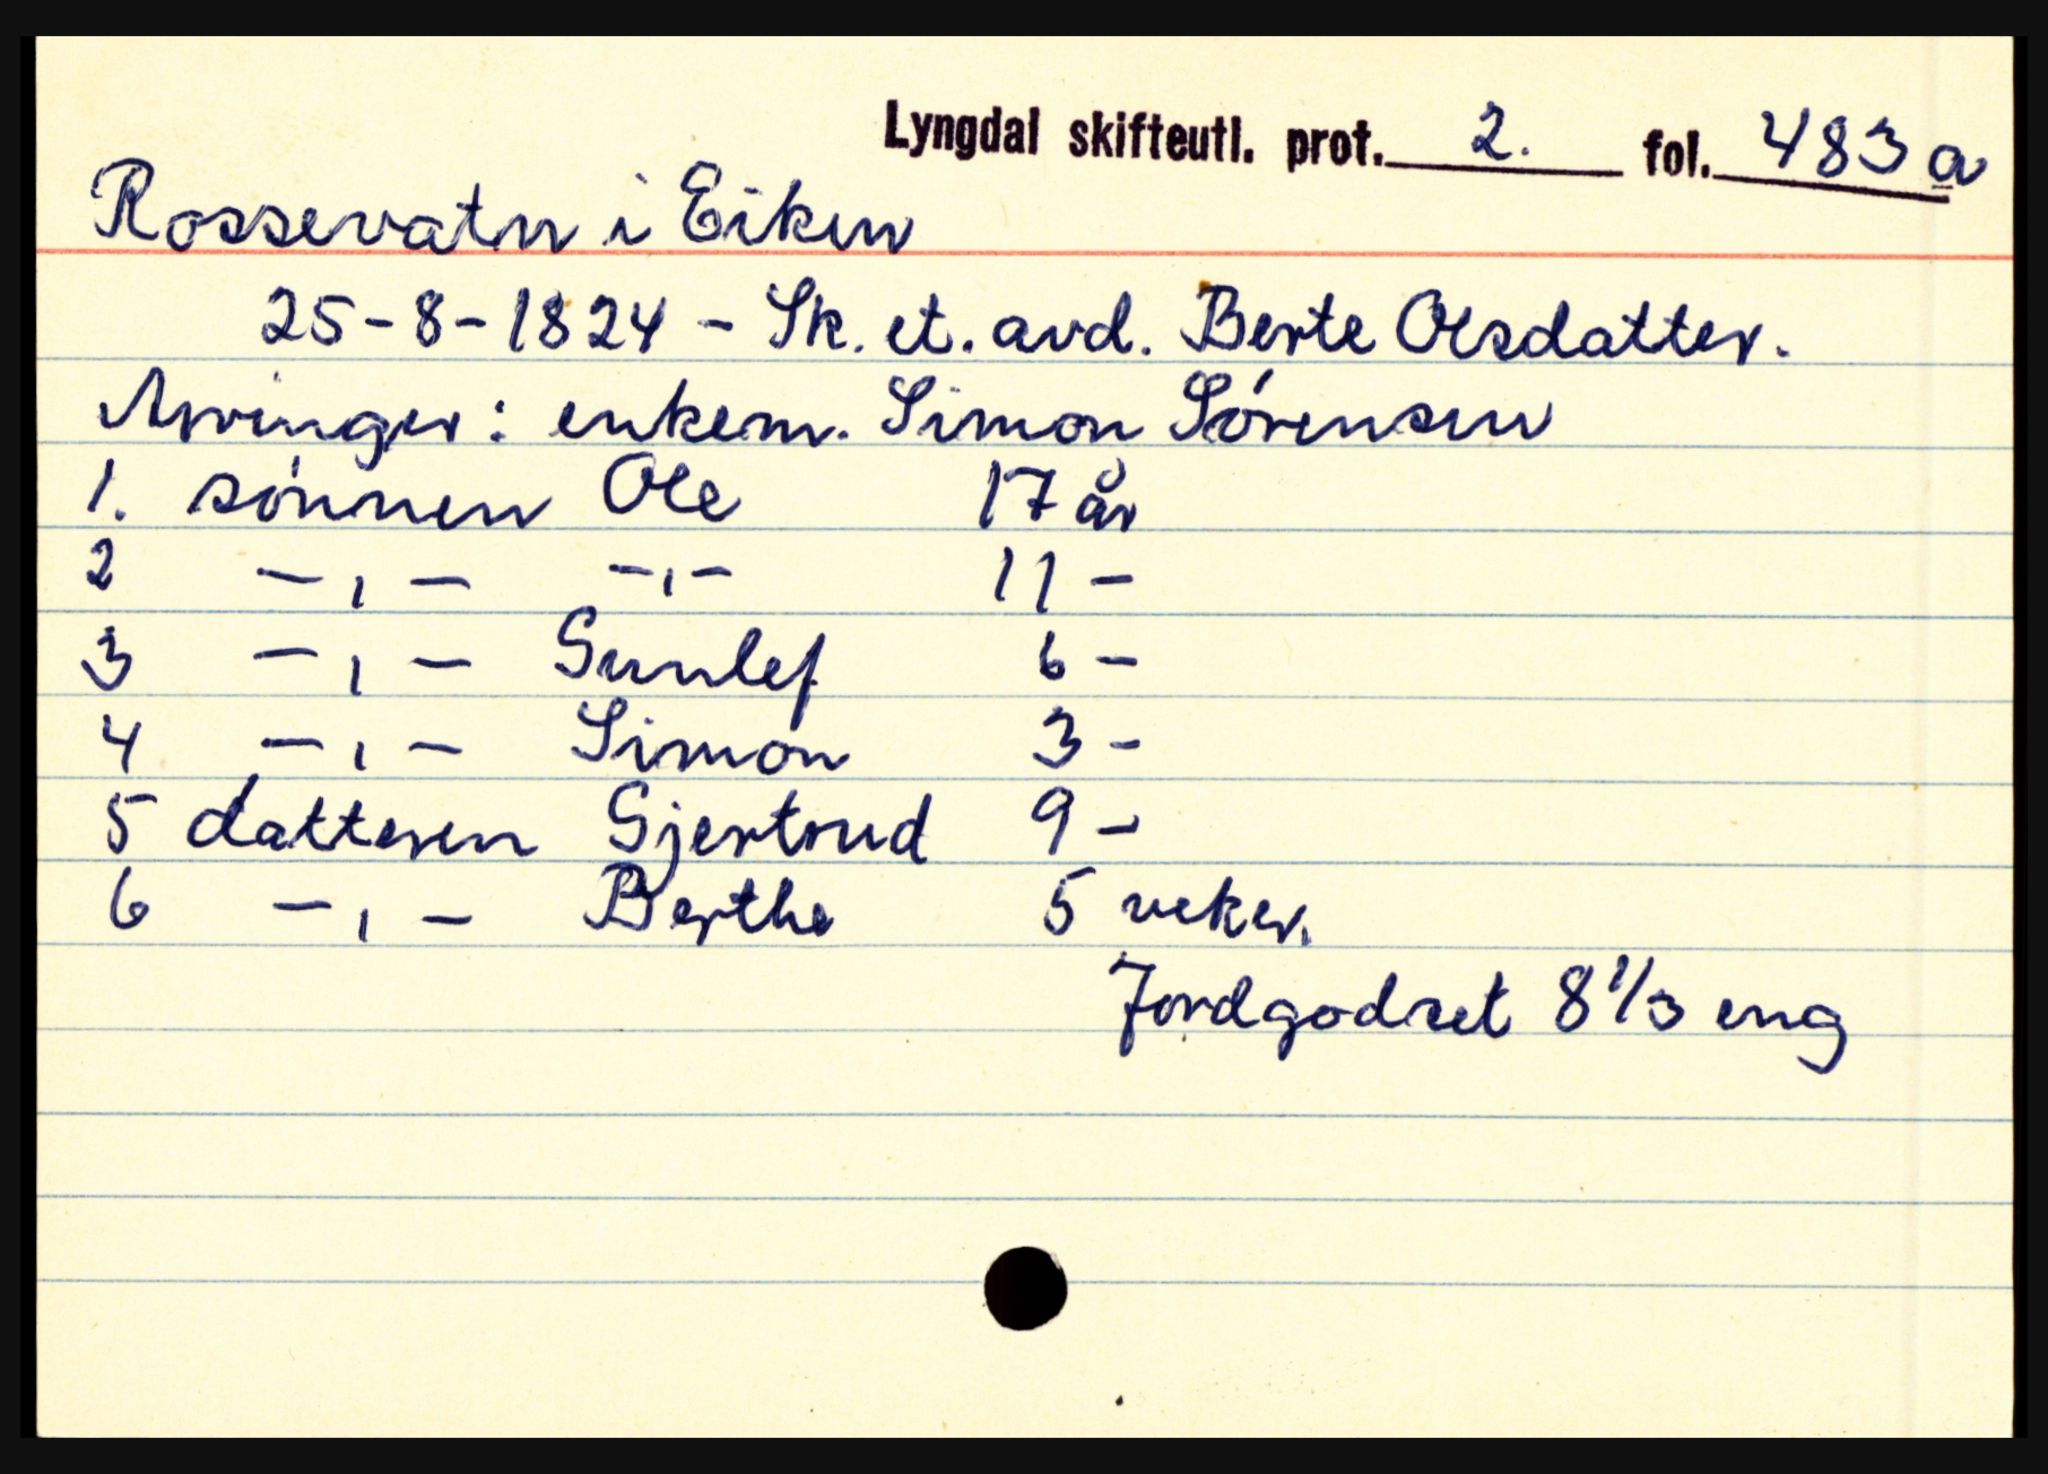 Lyngdal skifteutl. prot. 2. fol. 483 a
Rossevatn i Eiken
25-8-1824 - Sk. et. avd. Berte Olsdatter.
Arvinger: enkem. Simon Sórensen
1. sónnen Ole 17 år
2 -,- -,- 11 -
3 -,- Gunlef 6 -
4 -,- Simon 3 -
5 datteren Gjertrud 9 -
6 -,- Berthe 5 veker.
Jordgodset 8 1/3 eng